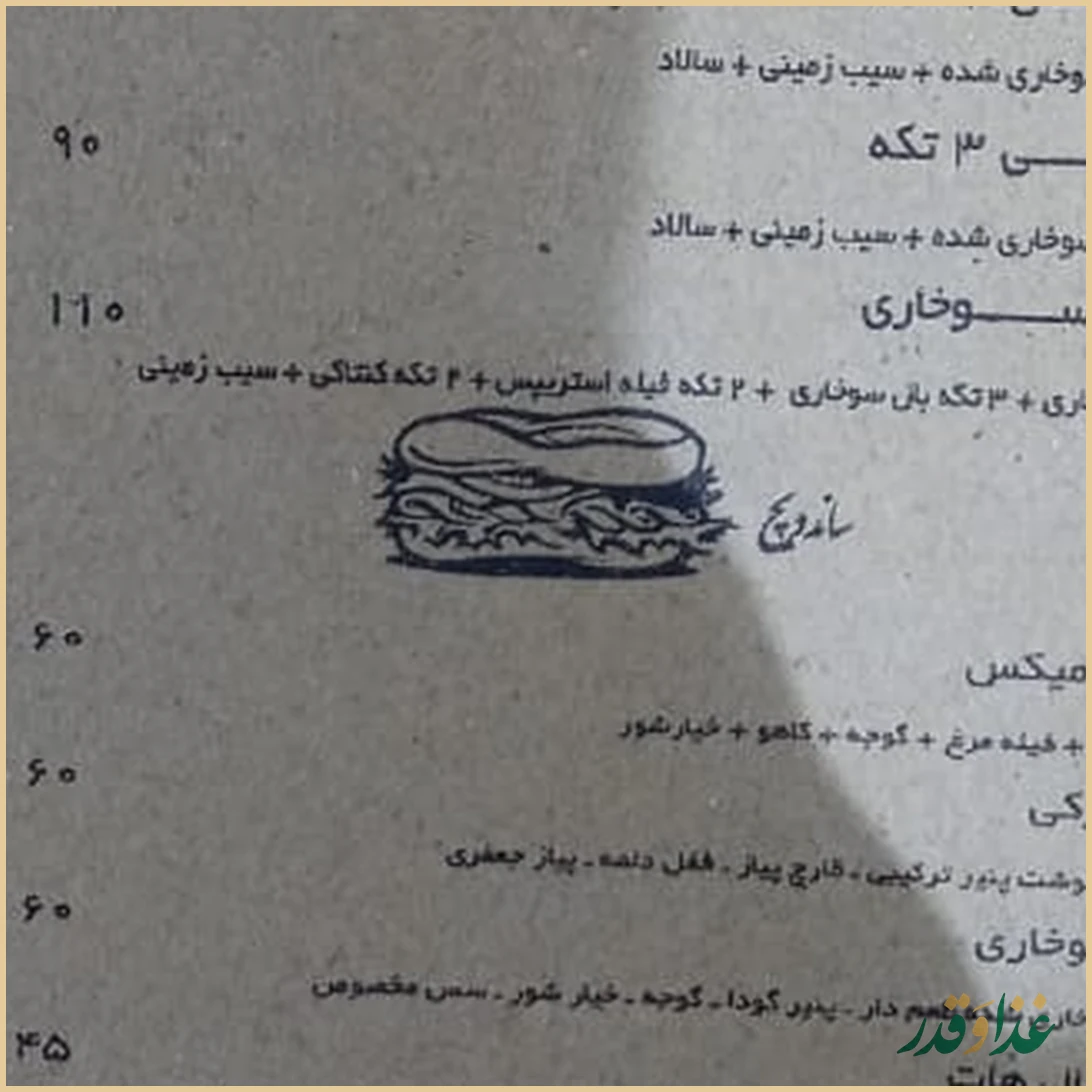 وخاری شده + سیب زمینی + سالاد
۹۰
ـی ۳ تکه
سوخاری شده + سیب زمینی + سالاد
۱۱۰
سوخاری
اری + ۳ تکه بال سوخاری + ۲ تکه فیله استریپس + ۲ تکه کنتاکی + سیب زمینی
ساندویچ
۶۰
میکس
+ فیله مرغ + گوجه + کاهو + خیارشور
۶۰
کی
وشت پنیر ترکیبی - قارچ پیاز - فلفل دلمه - پیاز جعفری
۶۰
وخاری
طعم دار - پنیر گودا - گوجه - خیار شور - سس مخصوص
غذا و قدر
۴۵
هات